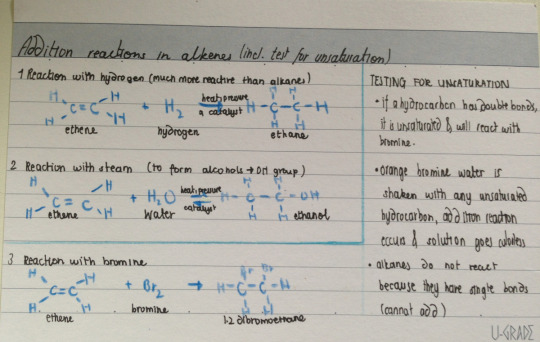 Addition reactions in alkenes (incl. test for unsaturation)
1 Reaction with hydrogen (much more reactive than alkanes)
H H H H
C=C + H₂ heat, pressure & catalyst H-C-C-H
H H H H
ethene hydrogen ethane
2 Reaction with steam (to form alcohols → OH group)
H H H H
C=C + H₂O heat, pressure catalyst H-C-C-OH
H H H H
ethene water ethanol
3 Reaction with bromine
H H Br Br
C=C + Br₂ → H-C-C-H
H H H H
ethene bromine 1-2 dibromoethane
TESTING FOR UNSATURATION
• if a hydrocarbon has double bonds,
it is unsaturated & will react with
bromine.
• orange bromine water is
shaken with any unsaturated
hydrocarbon, addition reaction
occurs & solution goes colourless
• alkanes do not react
because they have single bonds
(cannot add)
U-GRADE